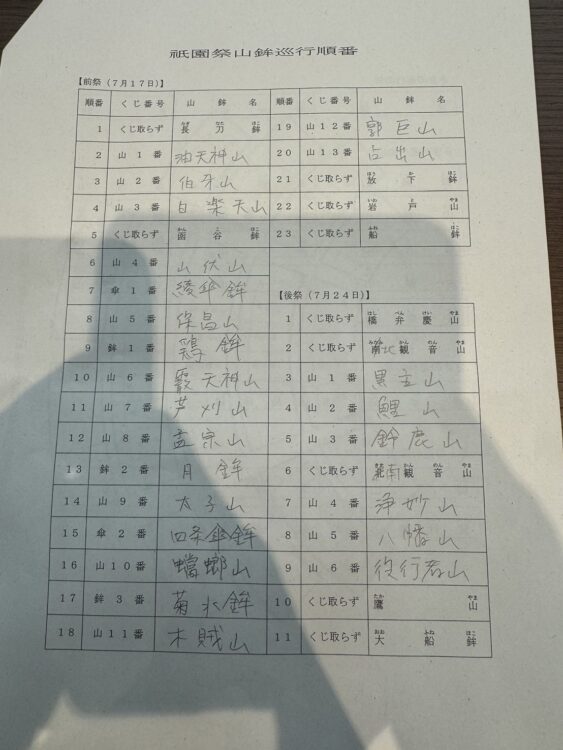 祇園祭山鉾巡行順番
【前祭（7月17日）】
順番 くじ番号 山鉾名
1 くじ取らず 長刀鉾
2 山1番 油天神山
3 山2番 伯牙山
4 山3番 白楽天山
5 くじ取らず 函谷鉾
6 山4番 山伏山
7 傘1番 綾傘鉾
8 山5番 保昌山
9 鉾1番 鶏鉾
10 山6番 霰天神山
11 山7番 芦刈山
12 山8番 孟宗山
13 鉾2番 月鉾
14 山9番 太子山
15 傘2番 四条傘鉾
16 山10番 蟷螂山
17 鉾3番 菊水鉾
18 山11番 木賊山
順番 くじ番号 山鉾名
19 山12番 郭巨山
20 山13番 占出山
21 くじ取らず 放下鉾
22 くじ取らず 岩戸山
23 くじ取らず 船鉾
【後祭（7月24日）】
1 くじ取らず 橋弁慶山
2 くじ取らず 南北観音山
3 山1番 黒主山
4 山2番 鯉山
5 山3番 鈴鹿山
6 くじ取らず 北南観音山
7 山4番 浄妙山
8 山5番 八幡山
9 山6番 役行者山
10 くじ取らず 鷹山
11 くじ取らず 大船鉾